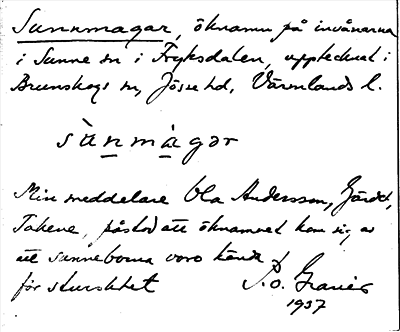 Sunnmagar, öknamn på invånarna
i Sunne sn i Fryksdalen, upptecknat i
Brunskogs sn, Jösse hd, Värmlands l.
sùnmàgar
Min meddelare Ola Andersson, Gärdet,
Takene, påstod att öknamnet kom sig av
att sunneborna voro kända
för sturskhet P.O. Granér
1937